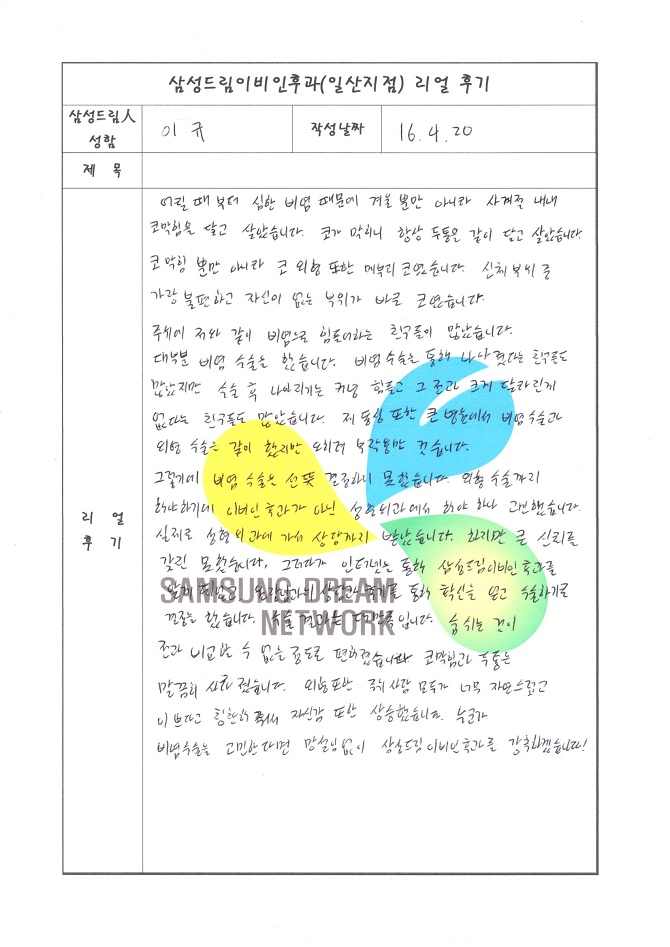 삼성드림이비인후과(일산지점) 리얼 후기
삼성드림人 성함
이 규
작성날짜
16.4.20
제 목
리 얼 후 기
어릴 때부터 심한 비염 때문에 겨울 뿐만 아니라 사계절 내내
코막힘을 달고 살았습니다. 코가 막히니 항상 두통을 같이 달고 살았습니다.
코막힘 뿐만 아니라 코 외형 또한 메부리코였습니다. 신체 부위 중
가장 불편하고 자신이 없는 부위가 바로 코였습니다.
주위에 저와 같이 비염으로 힘들어하는 친구들이 많았습니다.
대부분 비염 수술을 했습니다. 비염수술을 통해 나아졌다는 친구들도
많았지만 수술 후 나아지기는 커녕 힘들고 그 전과 크게 달라진게
없다는 친구들도 많았습니다. 제 동생 또한 큰 병원에서 비염수술과
외형 수술을 같이 했지만 오히려 부작용만 컸습니다.
그렇기에 비염 수술을 선뜻 결정하지 못했습니다. 외형 수술까지
해야하기에 이비인후과가 아닌 성형외과에서 해야 하나 고민했습니다.
실제로 성형외과에 가서 상담까지 받았습니다. 하지만 큰 신뢰를
갖진 못했습니다. 그러다가 인터넷을 통해 삼성드림이비인후과를
알게 되었고 원장님과의 상담과 후기를 통해 확신을 얻고 수술하기로
결정을 했습니다. 수술 결과는 대만족입니다. 숨 쉬는 것이
전과 비교할 수 없을 정도로 편해졌습니다. 코막힘과 두통은
말끔히 사라졌습니다. 외형또한 주위 사람 모두가 너무 자연스럽고
이쁘다고 칭찬해 줘서 자신감 또한 상승했습니다. 누군가
비염수술을 고민한다면 망설임없이 삼성드림이비인후과를 강추하겠습니다!
SAMSUNG DREAM
NETWORK